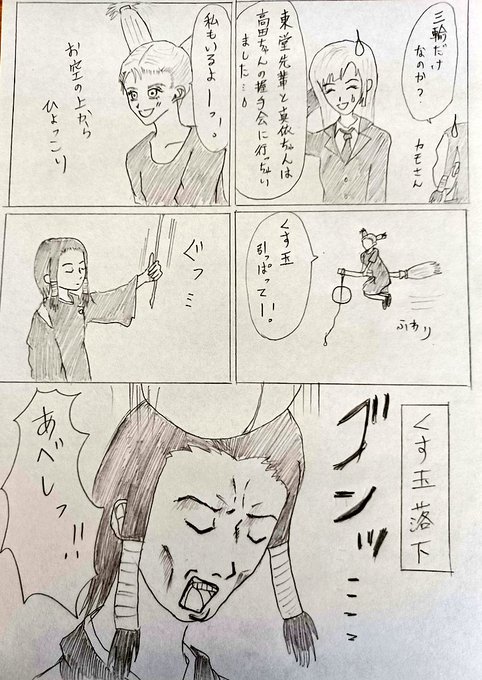 三輪だけ
なのか?
カモさん
東堂先輩と真依ちゃんは
高田ちゃんの握手会に行っちゃい
ました…。
私もいるよーっ!。
お空の上から
ひょっこり
くす玉
引っぱってー!。
ふわり
ぐっ…
くす玉落下
ゴンッ
あべしっ!!